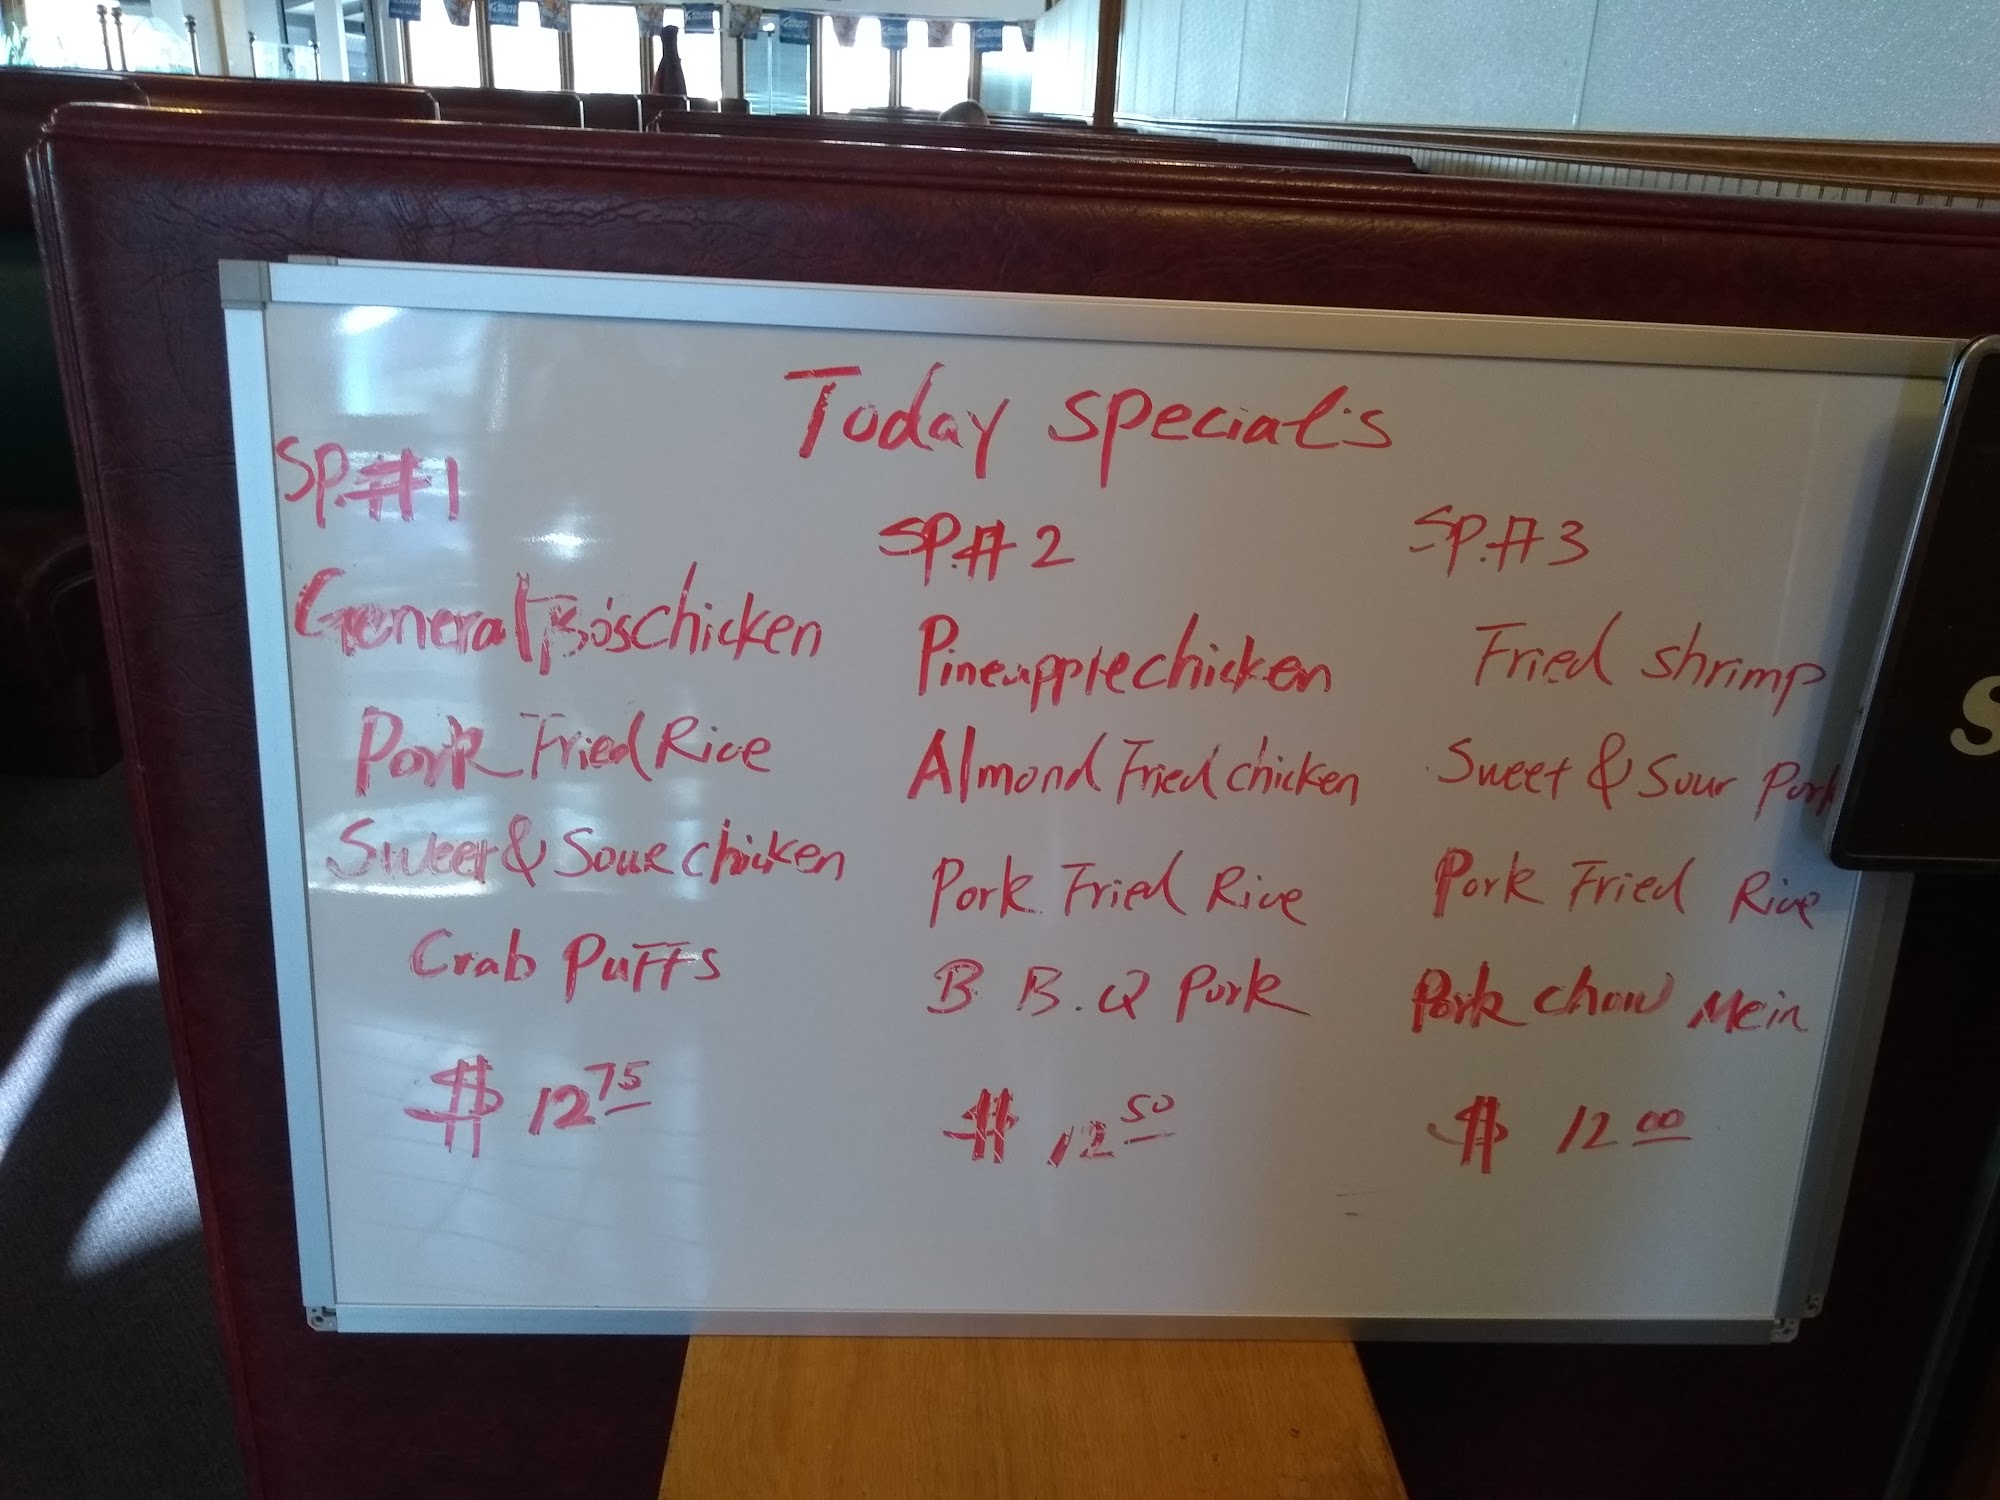 Today Special's
SP.#1
General Tso's Chicken
Pork Fried Rice
Sweet & Sour chicken
Crab Puffs
$ 12 75
SP.# 2
Pineapple chicken
Almond Fried chicken
Pork Fried Rice
B B.Q Pork
$ 12 50
SP.# 3
Fried shrimp
Sweet & Sour Pork
Pork Fried Rice
Pork Chow Mein
$ 12 00
S